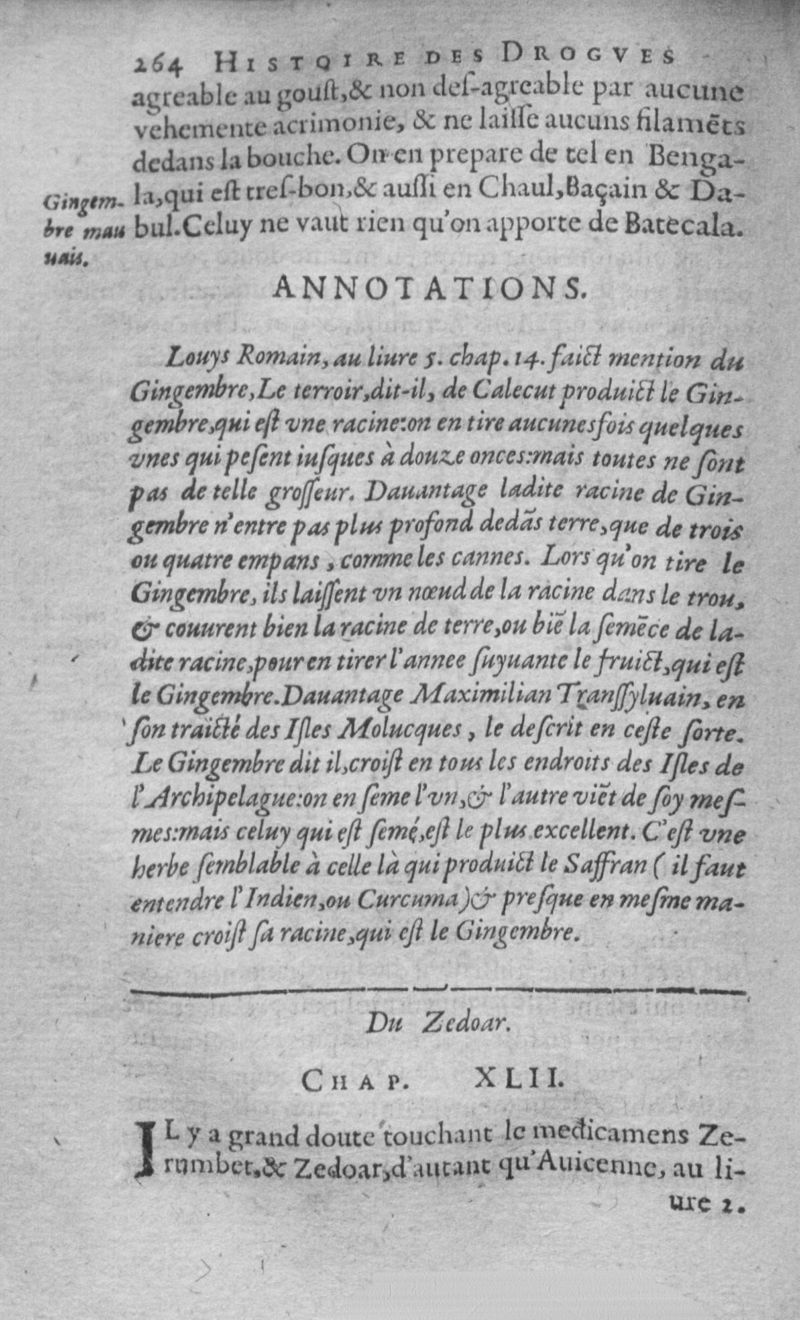 264 HISTOIRE DES DROGVES
agreable au gouſt,& non deſ-agreable par aucune
vehemente acrimonie, & ne laiſſe aucuns filamẽts
dedans la bouche. On en prepare de tel en Benga-
la,qui eſt treſ-bon,& auſſi en Chaul,Baçain & Da-
bul.Celuy ne vaut rien qu'on apporte de Batecala.
Gingem-
bre mau
uais.
ANNOTATIONS.
Louys Romain, au liure 5. chap. 14. faict mention du
Gingembre,Le terroir,dit-il, de Calecut produict le Gin-
gembre,qui eſt vne racine:on en tire aucunesfois quelques
vnes qui peſent iuſques à douze onces:mais toutes ne ſont
pas de telle groſſeur. Dauantage ladite racine de Gin-
gembre n'entre pas plus profond dedãs terre,que de trois
ou quatre empans, comme les cannes. Lors qu'on tire le
Gingembre, ils laiſſent vn nœud de la racine dans le trou,
& couurent bien la racine de terre,ou biẽ la ſemẽce de la-
dite racine,pour en tirer l'annee ſuyuante le fruict,qui eſt
le Gingembre.Dauantage Maximilian Tranſſyluain, en
ſon traicté des Iſles Molucques, le deſcrit en ceſte ſorte.
Le Gingembre dit il,croiſt en tous les endroits des Iſles de
l'Archipelague:on en ſeme l'vn,& l'autre viẽt de ſoy meſ-
mes:mais celuy qui eſt ſemé,eſt le plus excellent. C'eſt vne
herbe ſemblable à celle là qui produict le Saffran ( il faut
entendre l'Indien,ou Curcuma)& preſque en meſme ma-
niere croiſt ſa racine,qui eſt le Gingembre.
Du Zedoar.
CHAP. XLII.
IL y a grand doute touchant le medicamens Ze-
rumbet,& Zedoar,d'autant qu'Auicenne, au li-
ure 2.